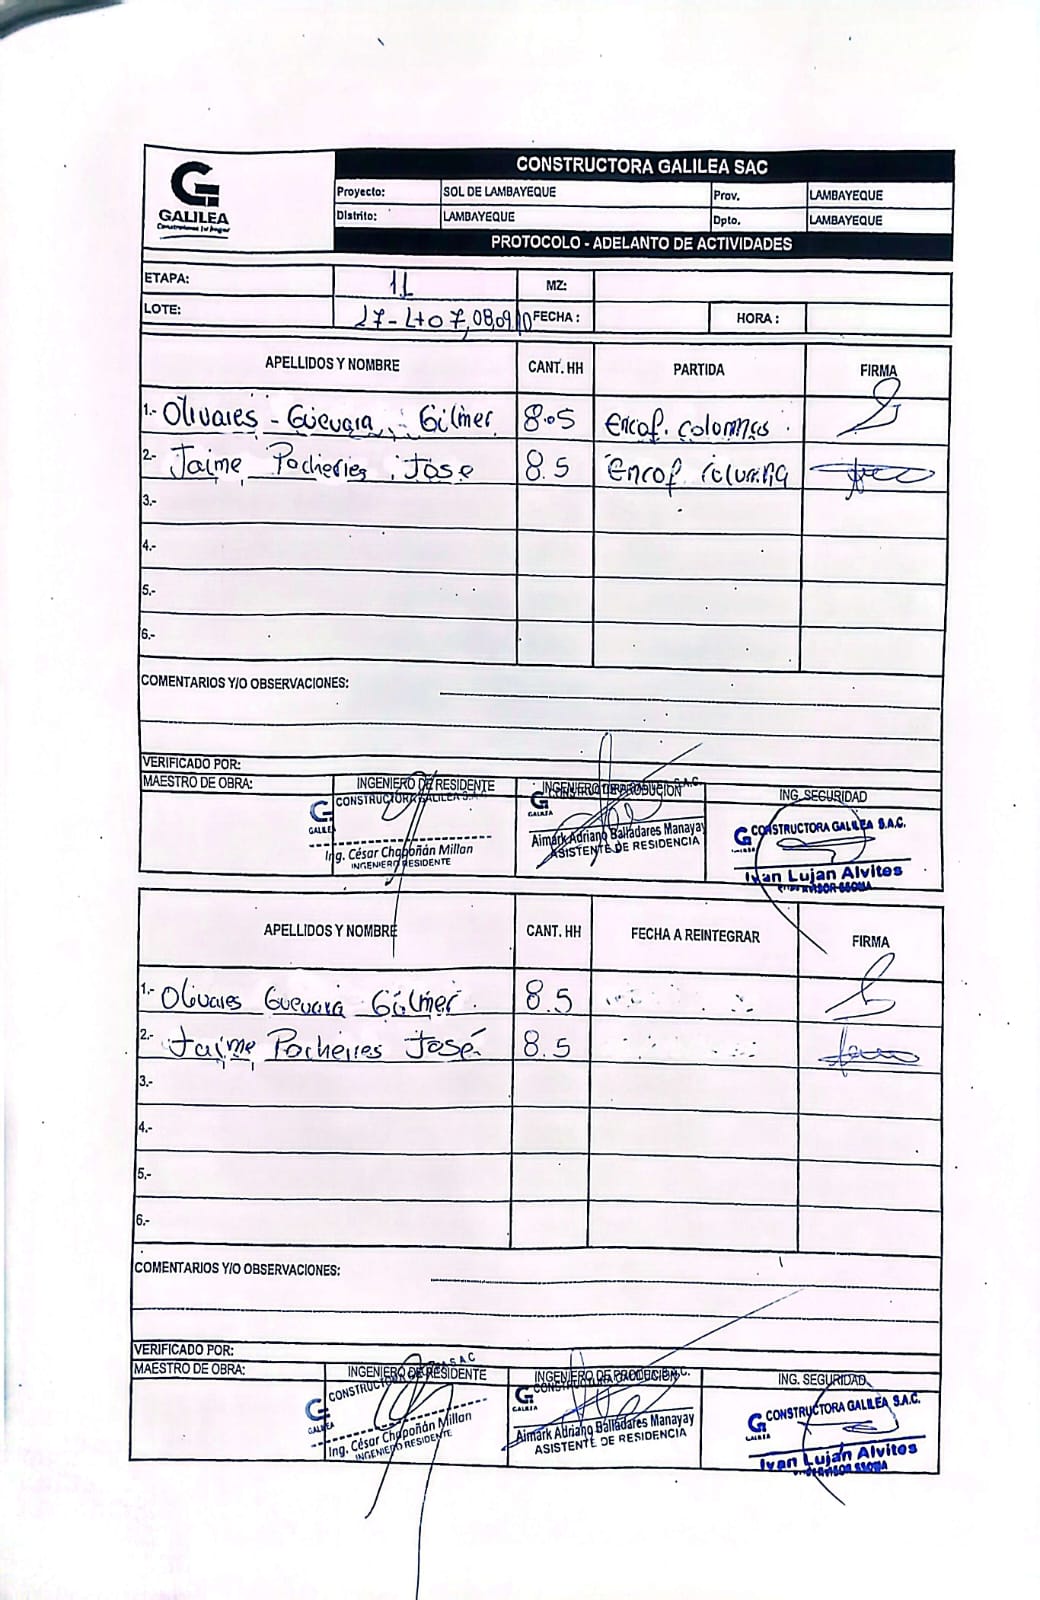 CONSTRUCTORA GALILEA SAC
GALILEA
Construimos tu hogar
Proyecto: SOL DE LAMBAYEQUE Prov. LAMBAYEQUE
Distrito: LAMBAYEQUE Dpto. LAMBAYEQUE
PROTOCOLO - ADELANTO DE ACTIVIDADES
ETAPA: 11 MZ:
LOTE: 27-Lto 7,08,09,10 FECHA: HORA:
APELLIDOS Y NOMBRE CANT. HH PARTIDA FIRMA
1.- Olivares - Guevara, Gilmer 8.5 Encof. colomnas.
2.- Jaime Pacherres Jose 8.5 Encof columna
3.-
4.-
5.-
6.-
COMENTARIOS Y/O OBSERVACIONES:
VERIFICADO POR:
MAESTRO DE OBRA: INGENIERO DE RESIDENTE INGENIERO DE PRODUCION ING. SEGURIDAD
CONSTRUCTORA GALILEA S.A.C.
GALILEA
Ing. César Chapoñán Millan
INGENIERO RESIDENTE
GALILEA
Aimark Adriano Balladares Manayay
ASISTENTE DE RESIDENCIA
CONSTRUCTORA GALILEA S.A.C.
Ivan Lujan Alvites
SUPERVISOR SSOMA
APELLIDOS Y NOMBRE CANT. HH FECHA A REINTEGRAR FIRMA
1.- Olivares Guevara Gilmer. 8.5
2.- Jaime Pacherres José. 8.5
3.-
4.-
5.-
6.-
COMENTARIOS Y/O OBSERVACIONES:
VERIFICADO POR:
MAESTRO DE OBRA: INGENIERO DE RESIDENTE INGENIERO DE PRODUCION ING. SEGURIDAD
GALILEA
Ing. César Chapoñán Millan
INGENIERO RESIDENTE
GALILEA
Aimark Adriano Balladares Manayay
ASISTENTE DE RESIDENCIA
CONSTRUCTORA GALILEA S.A.C.
GALILEA
Ivan Luján Alvites
SUPERVISOR SSOMA